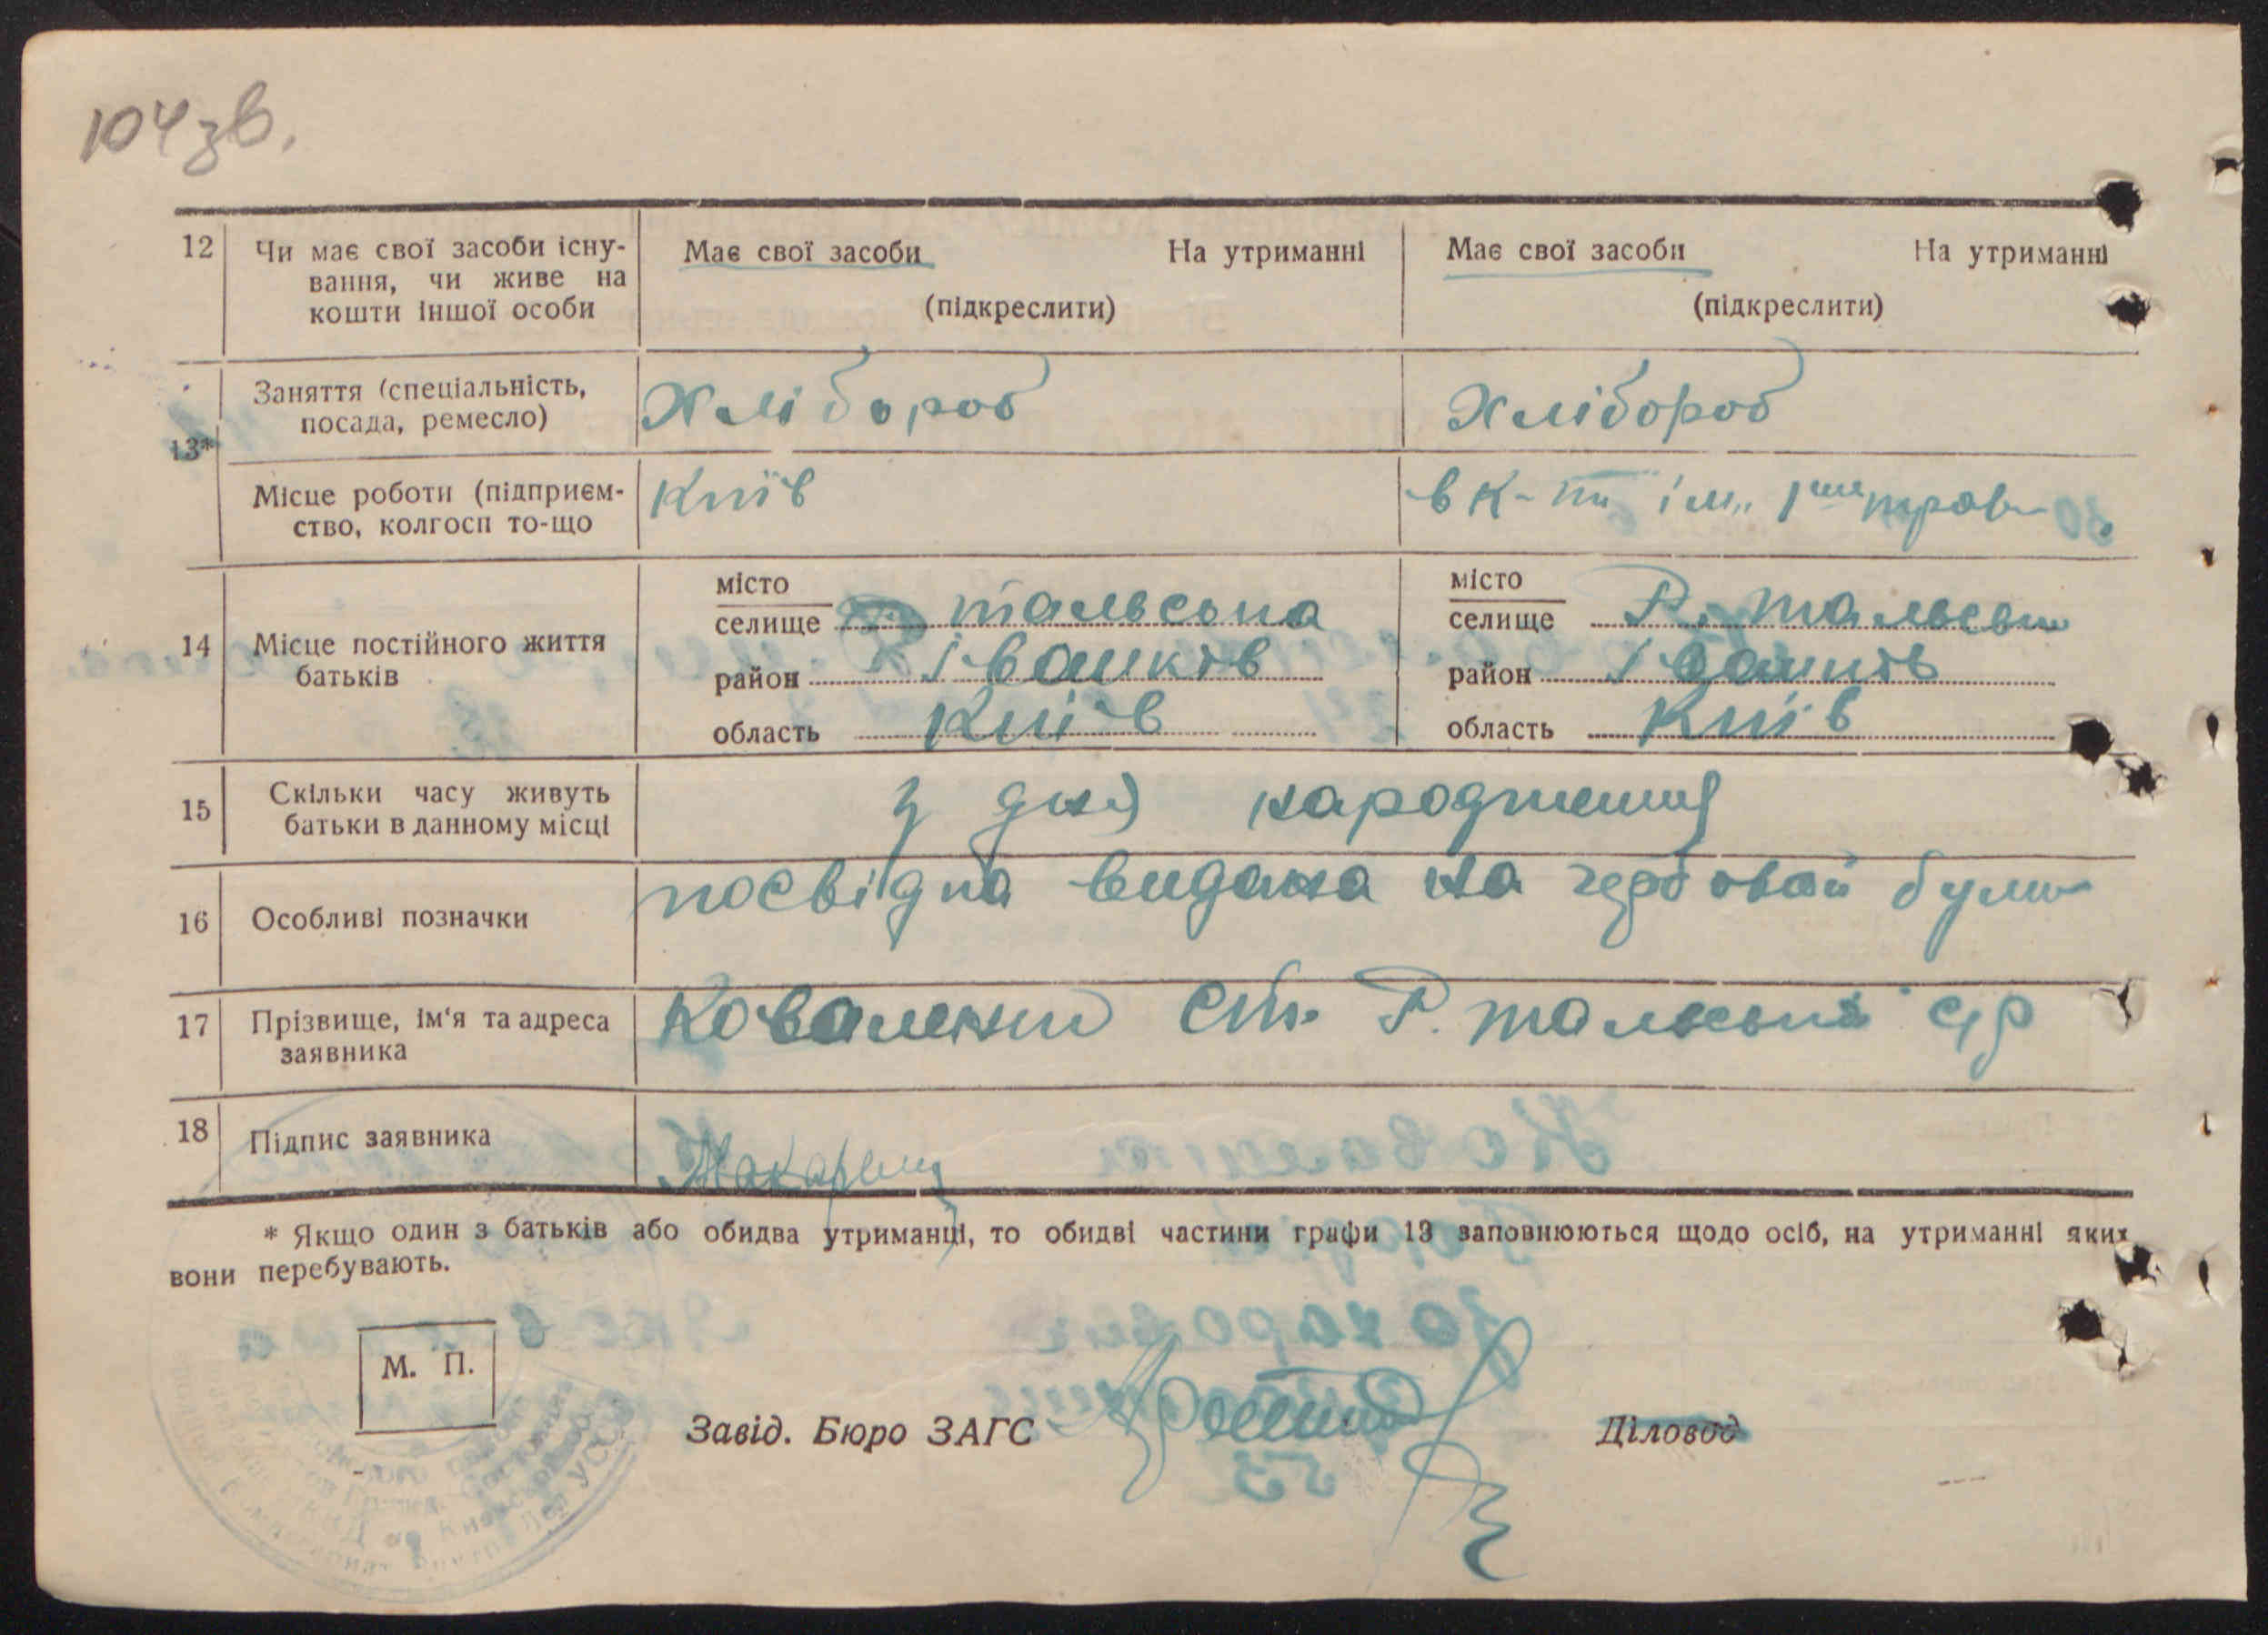 104 зв.
12 Чи має свої засоби існу- Має свої засоби На утриманні Має свої засоби На утриманні
вання, чи живе на
кошти іншої особи (підкреслити) (підкреслити)
13*
Заняття (спеціальність, Хлібороб Хлібороб
посада, ремесло)
Місце роботи (підприєм- Київ в к-пі ім. 1ше трав
ство, колгосп то-що
14 Місце постійного життя
батьків
місто
селище Р. тальська
район Іванків
область Київ
місто
селище Р. тальськ
район Іванків
область Київ
15 Скільки часу живуть з дня народження
батьки в данному місці
16 Особливі позначки посвідка видана на гербовой бум
17 Прізвище, ім'я та адреса Коваленко Р. тальська с/р
заявника
18 Підпис заявника
* Якщо один з батьків або обидва утриманці, то обидві частини графи 13 заповнюються щодо осіб, на утриманні яких
вони перебувають.
М. П.
Завід. Бюро ЗАГС Діловод